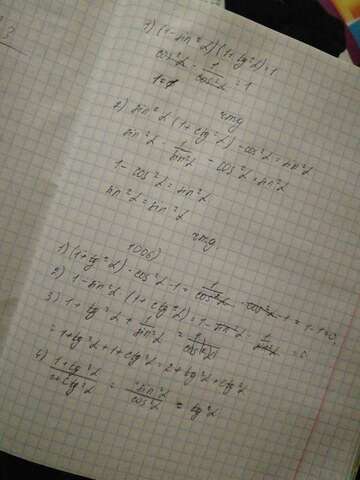 1) (1-sin²α)(1+tg²α)=1
cos²α · 1/cos²α = 1
1=1
чтд
2) sin²α (1+ctg²α) - cos²α = sin²α
sin²α · 1/sin²α - cos²α = sin²α
1 - cos²α = sin²α
sin²α = sin²α
чтд
1006)
1) (1+tg²α) · cos²α - 1 = 1/cos²α · cos²α - 1 = 1-1=0
2) 1-sin²α (1+ctg²α) = 1-sin²α · 1/sin²α = 0
3) 1+tg²α + 1/sin²α =
= 1+tg²α+1+ctg²α = 2+tg²α+ctg²α
4) 1+tg²α/1+ctg²α = sin²α/cos²α = tg²α